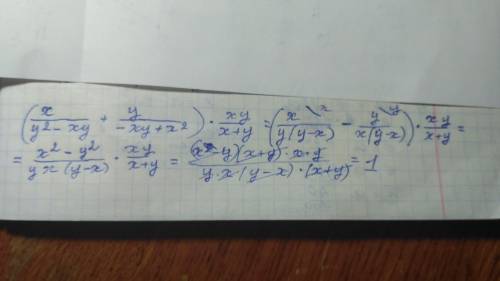 (x/(y²-xy) + y/(-xy+x²)) · xy/(x+y) = (x\x/(y(y-x)) - y\y/(x(y-x))) · xy/(x+y) =
= (x²-y²)/(yx(y-x)) · xy/(x+y) = (x-y)(x+y)·x·y/(y·x·(y-x)·(x+y)) = 1